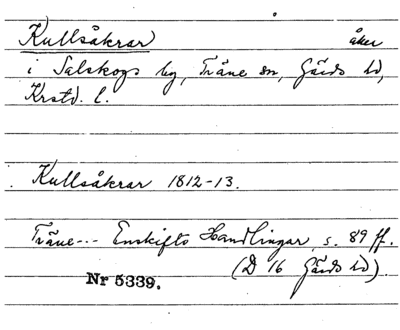 Kullsåkrar åker
i Salskogs by, Träne sn, Gärds hd,
Krstd. l.
Kullsåkrar 1812-13.
Träne--- Enskifts Handlingar, s. 89 ff.
(D 16 Gärds hd).
Nr 5339.